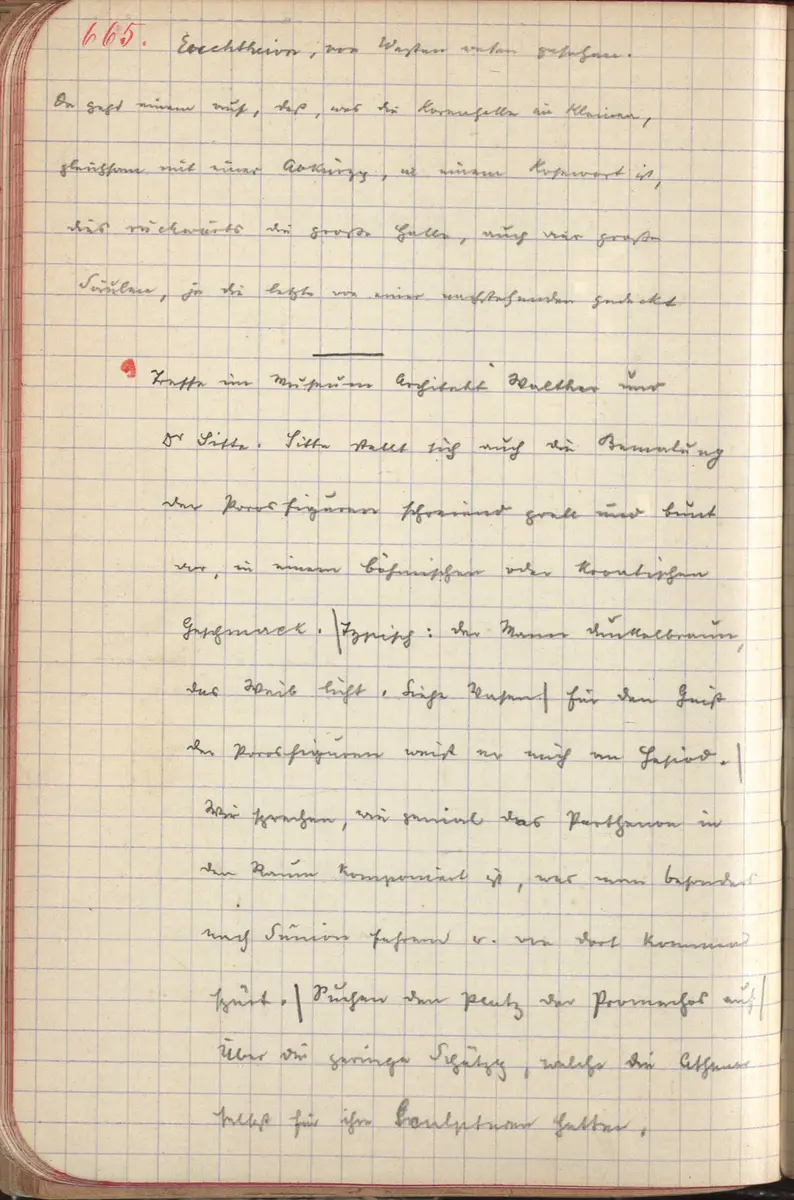 665. Erechtheion, von Westen unten gesehen.
Da geht einem auf, daß, was die Korenhalle im Kleinen,
gleichsam mit einer Abkürzg, in einem Kosewort ist,
dies rückwärts die große Halle, auch vier große
Säulen, ja die letzte von einer nachstehenden gedeckt
Treffe im Museum Architekt Walther und
Dr Sitte. Sitte stellt sich auch die Bemalung
der Porosfiguren schreiend grell und bunt
vor, in einem böhmischen oder kroatischen
Geschmack. | Typisch: der Mann dunkelbraun,
das Weib licht. Siehe Vasen | Für den Geist
der Porosfiguren weist er mich an Hesiod. |
Wir sprechen, wie genial das Parthenon in
den Raum komponiert ist, was man besonders
nach Sunion fahrend u. von dort kommend
spürt. | Suchen den Platz der Promachos auf |
Über die geringe Schätzg, welche die Athener
selbst für ihre Sculpturen hatten.